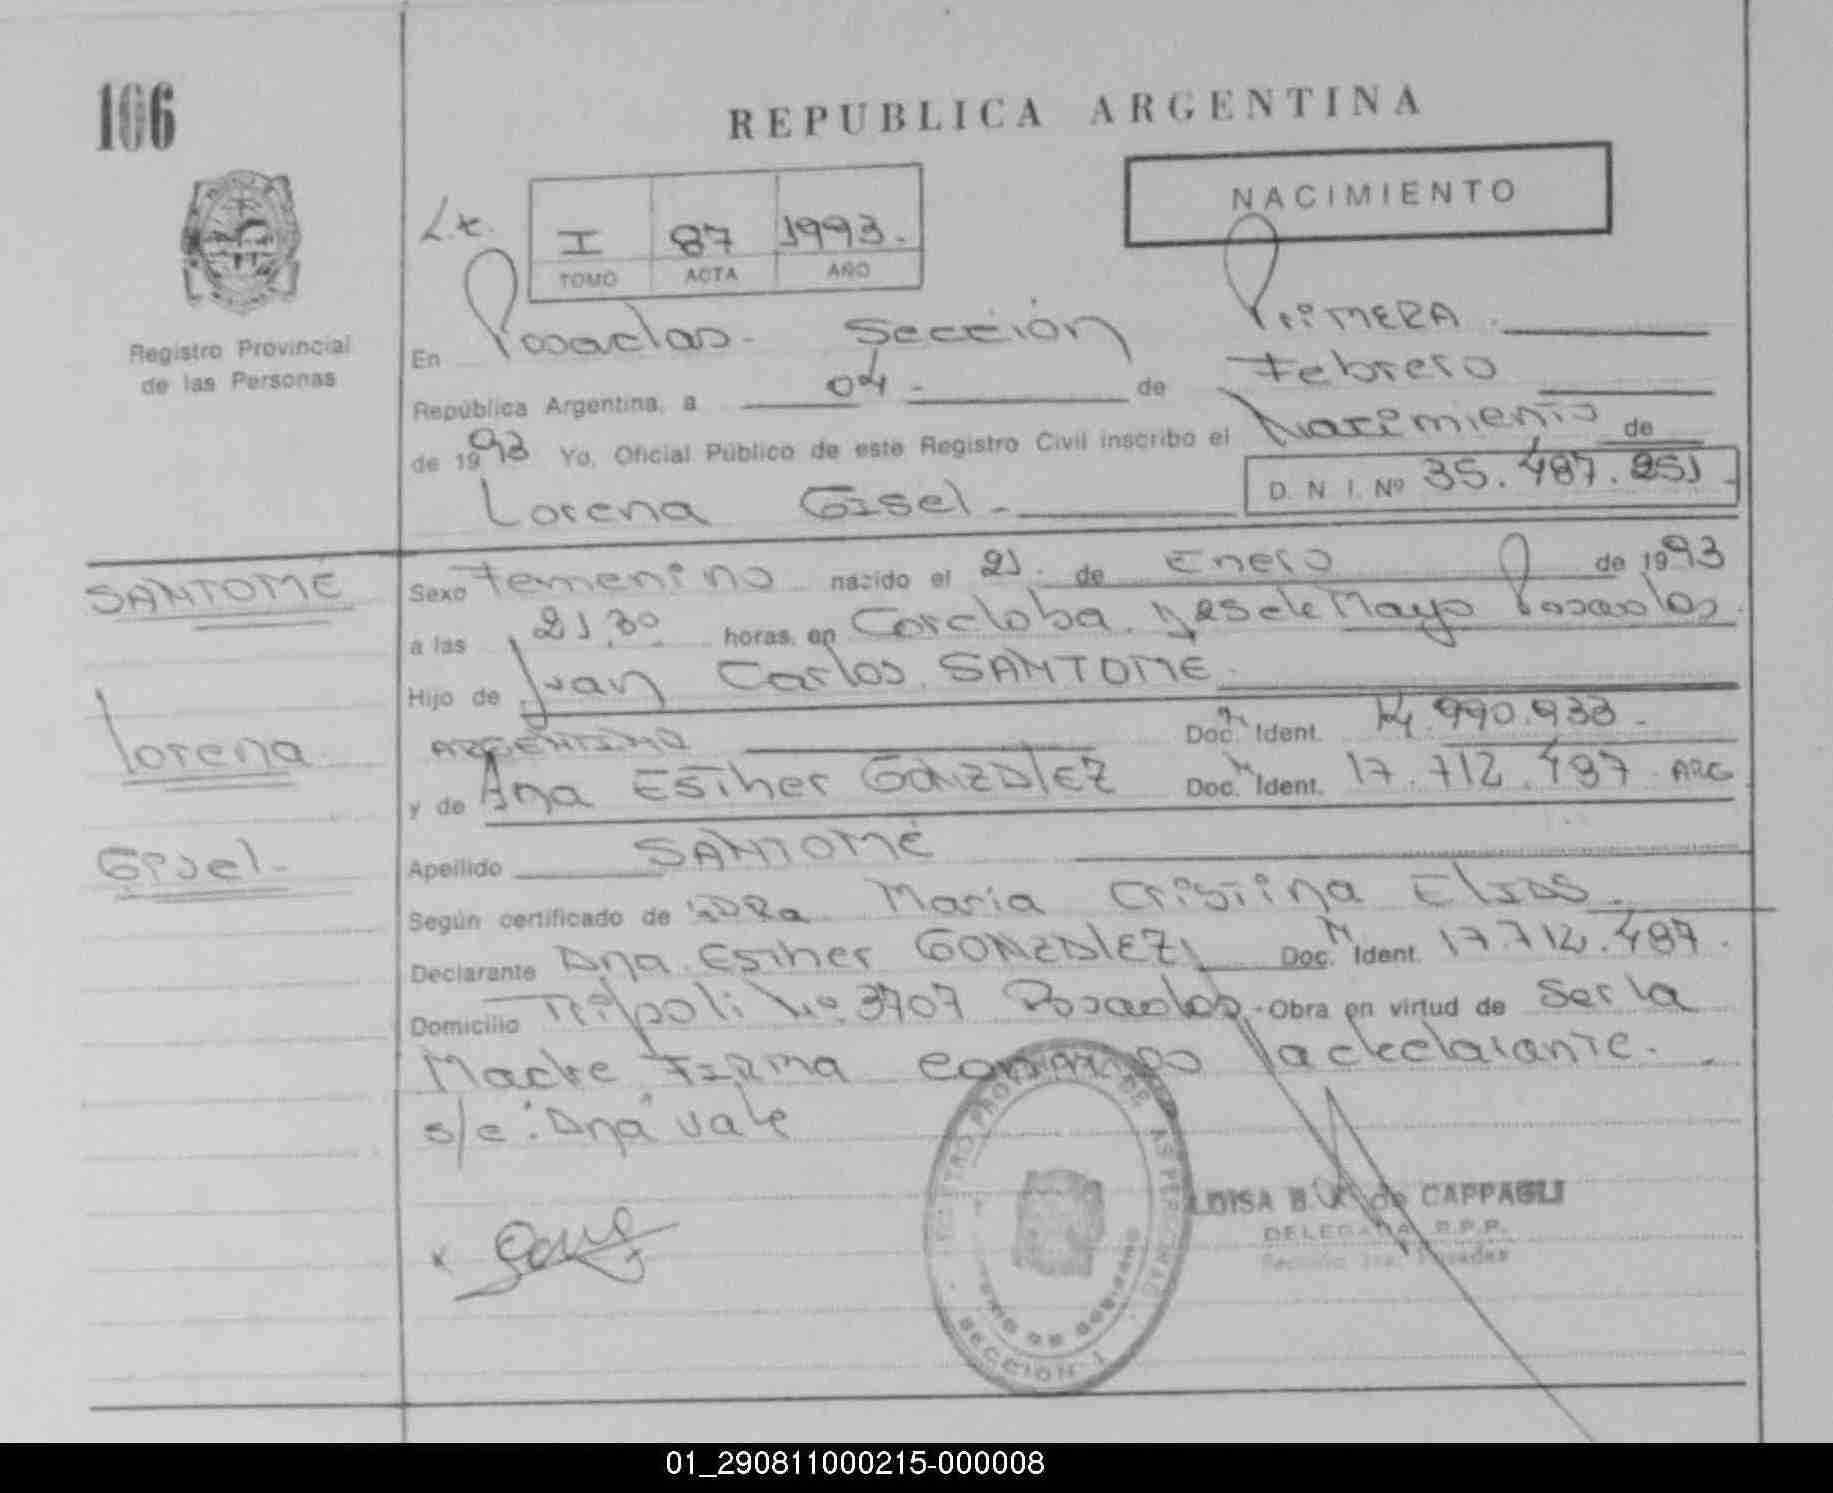 106
REPUBLICA ARGENTINA
NACIMIENTO
Lt. I 87 1993.
TOMO ACTA AÑO
Registro Provincial
de las Personas
En Posadas - Sección PRIMERA
República Argentina, a 04 - de Febrero
de 1993 Yo, Oficial Público de este Registro Civil inscribo el Nacimiento de
Lorena Gisel - D. N. I. Nº 35.487.251
SANTOMÉ
Lorena
Gisel -
Sexo Femenino nacido el 21 de Enero de 1993
a las 21.30 horas, en Cordoba y 25 de Mayo Posadas
Hijo de Juan Carlos SANTOMÉ
ARGENTINO Doc. Ident. 14.990.933 -
y de Ana Esther GONZALEZ Doc. Ident. 17.712.497 ARG
Apellido SANTOMÉ
Según certificado de María Cristina Elias
Declarante Ana Esther GONZALEZ Doc. Ident. 17.712.497.
Domicilio Tripoli Nº 3707 Posadas - Obra en virtud de Ser la
Madre Firma conmigo la declarante.
s/e: "Ana" vale
REGISTRO PROVINCIAL DE LAS PERSONAS
SECCION 1
LUISA B. de CAPPAGLI
DELEGADA R.P.P.
Sección 1ra. Posadas
01_290811000215-000008